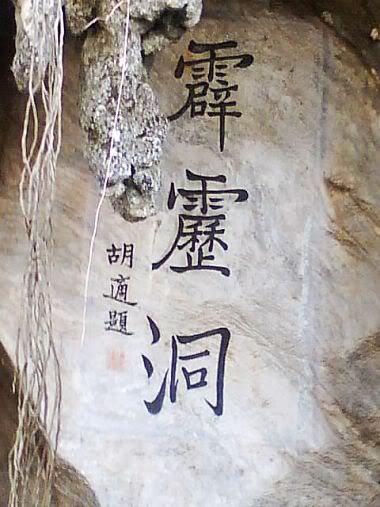 霹靂洞
胡適題